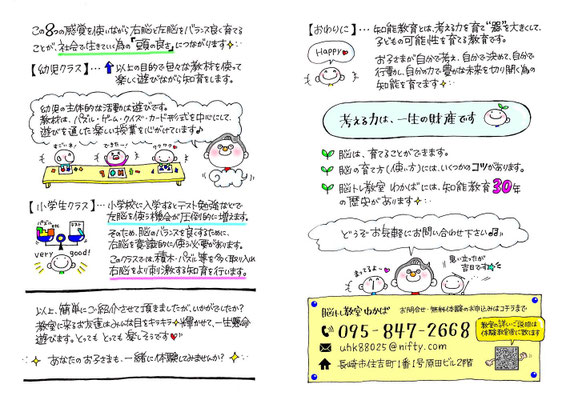 この8つの感覚を使いながら右脳と左脳をバランス良く育てる
ことが、社会で生きていく為の『頭の良さ』につながります
【幼児クラス】…↑以上の目的で色々な教材を使って
楽しく遊びながら知育をします。
幼児の主体的な活動は遊びです。
教材は、パズル・ゲーム・クイズ・カード形式を中心にして、
遊びを通した楽しい授業を心がけています♪
すご〜い!
できた〜!
ワクワク
【小学生クラス】…小学校に入学するとテスト勉強などで
左脳を使う機会が圧倒的に増えます。
そのため、脳のバランスを良くするために、
右脳を意識的に使う必要があります。
このクラスでは、積木・パズル等を多く取り入れ
右脳をより刺激する知育を行います。
パズル
テスト
very good!
以上、簡単にご紹介させて頂きましたが、いかがでしたか?
教室に来るお友達はみんな目をキラキラ輝かせて、一生懸命
遊びます。とっても とっても 愛しそうです
あなたのお子さまも、一緒に体験してみませんか?
【おわりに】…知能教育とは、考える力を育て"器"を大きくして、
子どもの可能性を育てる教育です。
お子さまが自分で考え、自分で決めて、自分で
行動し、自分の力で豊かな未来を切り開く為の
知能を育てます
Happy
考える力は、一生の財産です
脳は、育てることができます。
脳の育て方(使い方)には、いくつかのコツがあります。
脳トレ教室 わかばには、知能教育30年
の歴史があります
どうぞお気軽にお問い合わせ下さい♪
まってるよ〜
思い立ったが
吉日です
脳トレ教室わかば お問合せ・無料体験のお申込みはコチラまで
095-847-2668
uhk88025@nifty.com
長崎市住吉町1番1号原田ビル2階
教室の詳しいご説明は
体験教室後に致します